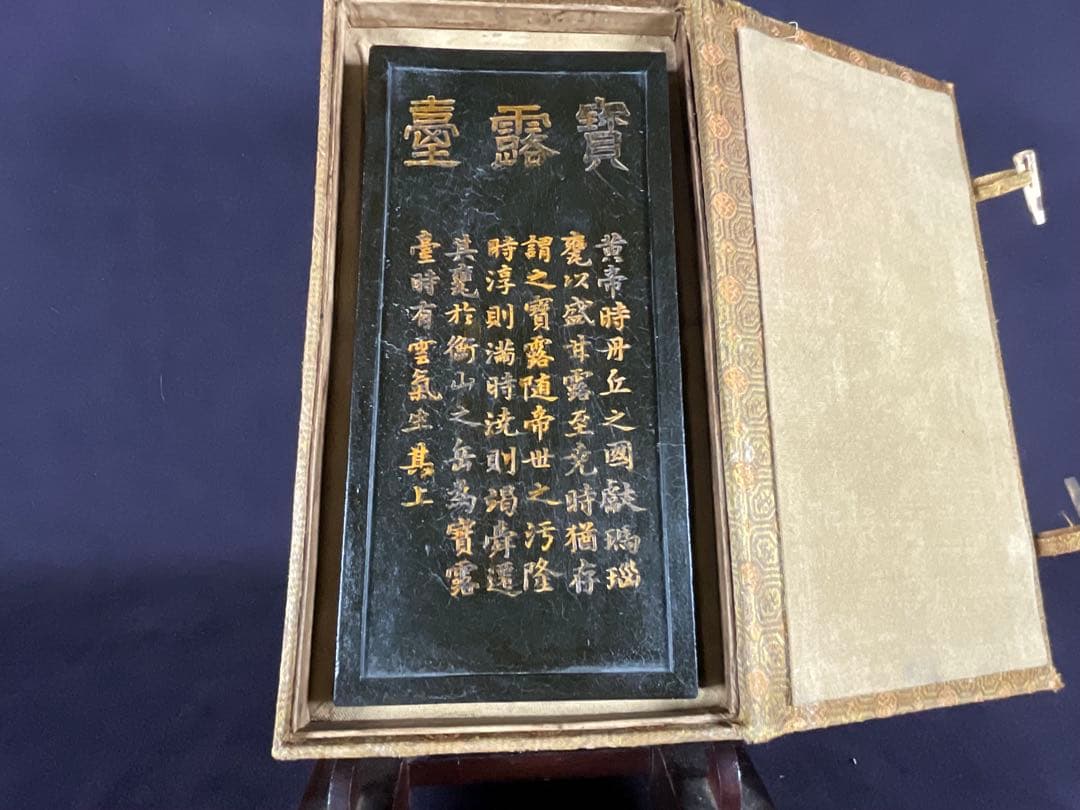 寶露臺
黄帝時丹丘之國獻瑪瑙
甕以盛甘露至堯時猶存
謂之寶露随帝世之污隆
時淳則滿時澆則竭舜遷
其甕於衡山之岳為寶露
臺時有雲氣生其上